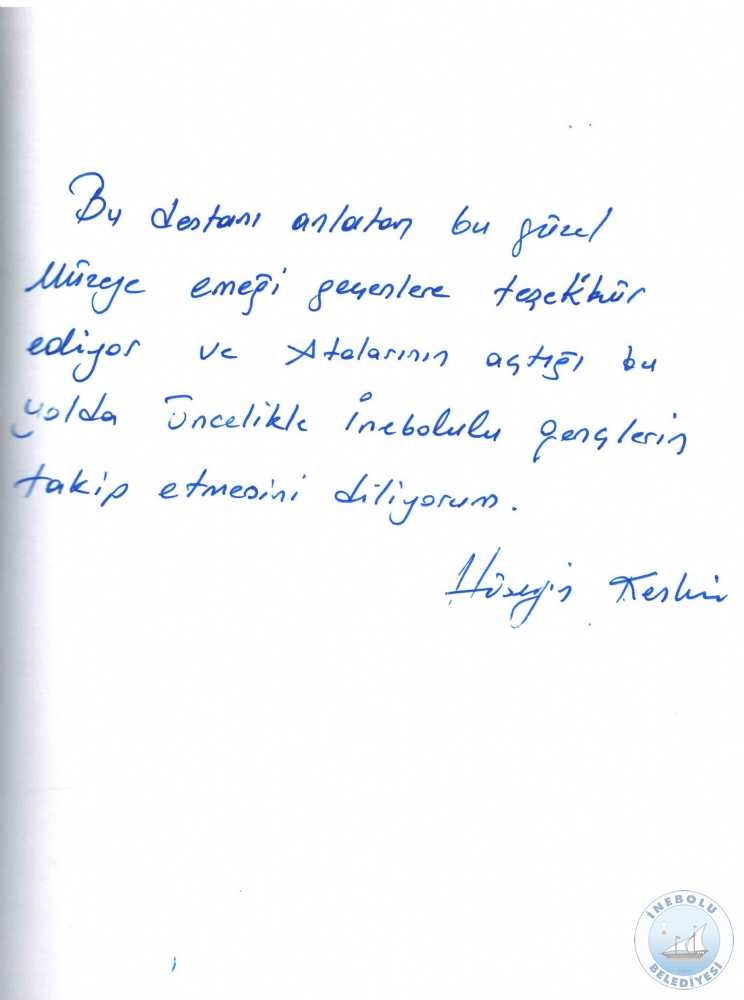 Bu destanı anlatan bu güzel
Müzeye emeği geçenlere teşekkür
ediyor ve Atalarının açtığı bu
yolda öncelikle İnebolulu gençlerin
takip etmesini diliyorum.
Hüseyin Keskin
İNEBOLU
BELEDİYESİ